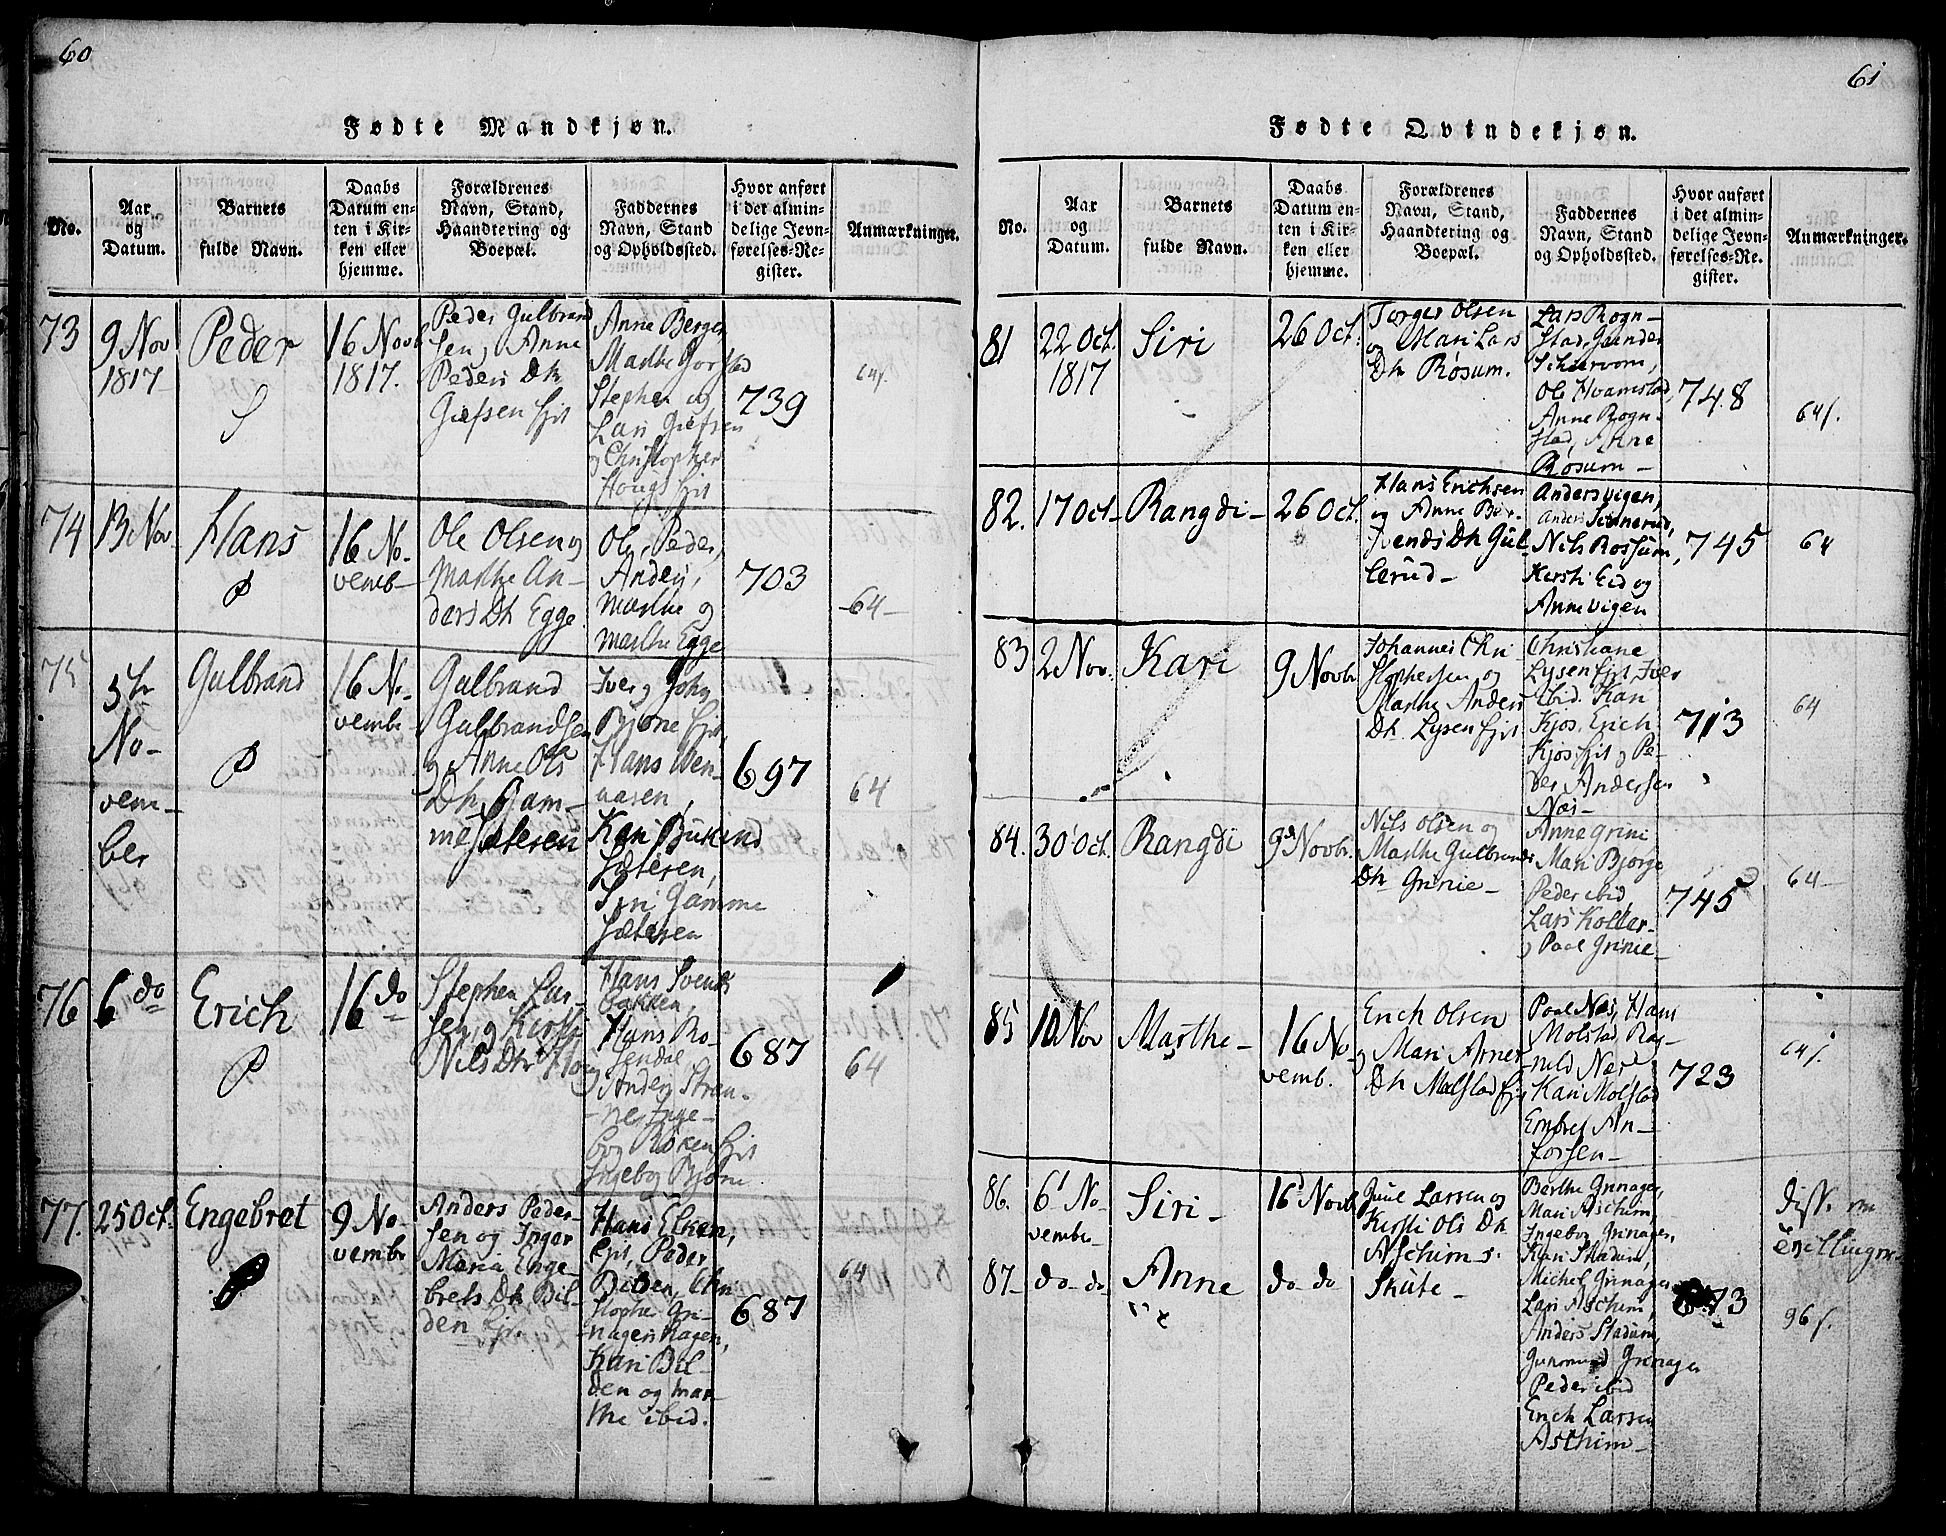 60
Fødte Mandkjøn.
No.
Aar og Datum.
Barnets fulde Navn.
Daabs Datum enten i Kirken eller hjemme.
Forældrenes Navn, Stand, Haandtering og Boepæl.
Faddernes Navn, Stand og Opholdssted.
Hvor anført i det almindelige Jevnførelses-Register.
Anmærkninger.
73
9 Nov
1817
Peder
16 Novb
1817.
Peder Gulbrand
sen og Anne
Peders Dtr
Anne Berger
Marthe
Stephen og
Lars
og Christopher
739
64
74
13 Nov
Hans
P
16 No-
vemb-
Ole Olsen og
Marthe An-
ders Dtr Egge
Ole, Peder,
Anders,
Marthe og
Marthe Egge
703
-64-
75
5te
No-
vem-
ber
Gulbrand
P
16 No-
vembr
Gulbrand
Gulbrandsen
og Anne Ols
Dtr Gam-
mesæteren
Iver og John
Bjøne
Hans Wen-
aasen,
Kari
Sæteren,
Siri Gamme
Sæteren
697
64
76
6 do
Erich
P
16 do
Stephen Lar-
sen og Kirsti
Nils Dtr
Hans Svends
bakken,
Hans Ro-
sendal
og Anders Stren-
ne, Inge-
Ingebor Bjøne
687
64
77.
25 Oct.
Engebret
9 No-
vembr
Anders Peder-
sen og Inger
Maria Enge-
brets Dtr Bil-
den
Hans Elken,
Peder
Bilden, Chri
stopher Gri-
nager,
Kari Bil-
den og Mar-
the ibid.
687
64
61
Fødte Qvindekjøn.
No.
Aar og Datum.
Barnets fulde Navn.
Daabs Datum enten i Kirken eller hjemme.
Forældrenes Navn, Stand, Haandtering og Boepæl.
Faddernes Navn, Stand og Opholdssted.
Hvor anført i det almindelige Jevnførelses-Register.
Anmærkninger.
81
22 Oct.
1817
Siri
26 Oct.
Torger Olsen
og Mari Lars
Dtr Røsum.
Lars Rogn-
stad,
Ole Hvamstad,
Anne Rogn-
stad, Anne
Røsum-
748
64
82.
17 Oct-
Rangdi-
26 Oct.
Hans Erichsen
og Anne Ber-
Dtr Gul-
lerud-
Anders vigen,
Anders
Nils Rossum,
Kirsti Eid og
Anne vigen
745
64
83
2 Nov.
Kari
9 Novbr
Johannes Chri
stophersen og
Marthe Anders
Dtr. Lysen
Christiane
Lysen Iver
ibid. Kari
Kjos, Erich
Kjos og Pe-
der Andersen
Næs-
713
64
84.
30 Oct.
Rangdi
9 Novbr.
Nils Olsen og
Marthe Gulbrands
Dtr Grinie-
Anne Grini
Mari Bjorge
Peder ibid,
Lars Koller-
og Paal Grinie-
745
64-
85
10 Nov
Marthe-
16 No
vemb.
Erich Olsen
og Mari Arnes
Dtr Molstad
Paal Næs, Hans
Molstad, Rag-
nild Næs
Kari Molstad
Embret An-
forsen-
723
64
86.
6 No
vembr-
Siri-
16 Novb
Juul Larsen og
Kirsti Ols Dtr
Aschim
Skute-
Berthe Grinager,
Mari Aschim,
Ingebor Grinager,
Kari Stadum,
Michel Grinager
Lars Aschim,
Anders Stadum,
Gunmund Grinager
Peder ibid
Erich Larsen
Aschim-
87-
do- do
Anne
do- do
673
96